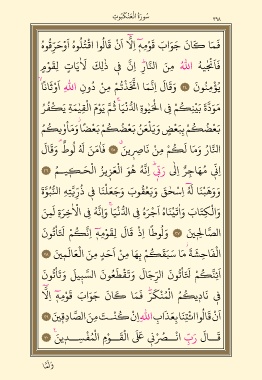 سُورَةُ الْعَنْكَبُوتِ ٣٩٨
فَمَا كَانَ جَوَابَ قَوْمِهِ إِلَّا أَنْ قَالُوا اقْتُلُوهُ أَوْ حَرِّقُوهُ
فَأَنْجٰيهُ اللّٰهُ مِنَ النَّارِ إِنَّ فِي ذٰلِكَ لَاٰيَاتٍ لِقَوْمٍ
يُؤْمِنُونَ ﴿٢٤﴾ وَقَالَ إِنَّمَا اتَّخَذْتُمْ مِنْ دُونِ اللّٰهِ أَوْثَانًا
مَوَدَّةَ بَيْنِكُمْ فِي الْحَيٰوةِ الدُّنْيَا ثُمَّ يَوْمَ الْقِيٰمَةِ يَكْفُرُ
بَعْضُكُمْ بِبَعْضٍ وَيَلْعَنُ بَعْضُكُمْ بَعْضًا وَمَأْوٰيكُمُ
النَّارُ وَمَا لَكُمْ مِنْ نَاصِرِينَ ﴿٢٥﴾ فَاٰمَنَ لَهُ لُوطٌ وَقَالَ
إِنِّي مُهَاجِرٌ إِلٰى رَبِّي إِنَّهُ هُوَ الْعَزِيزُ الْحَكِيمُ ﴿٢٦﴾
وَوَهَبْنَا لَهُ إِسْحٰقَ وَيَعْقُوبَ وَجَعَلْنَا فِي ذُرِّيَّتِهِ النُّبُوَّةَ
وَالْكِتَابَ وَاٰتَيْنَاهُ أَجْرَهُ فِي الدُّنْيَا وَإِنَّهُ فِي الْاٰخِرَةِ لَمِنَ
الصَّالِحِينَ ﴿٢٧﴾ وَلُوطًا إِذْ قَالَ لِقَوْمِهِ إِنَّكُمْ لَتَأْتُونَ
الْفَاحِشَةَ مَا سَبَقَكُمْ بِهَا مِنْ أَحَدٍ مِنَ الْعَالَمِينَ ﴿٢٨﴾
أَئِنَّكُمْ لَتَأْتُونَ الرِّجَالَ وَتَقْطَعُونَ السَّبِيلَ وَتَأْتُونَ
فِي نَادِيكُمُ الْمُنْكَرَ فَمَا كَانَ جَوَابَ قَوْمِهِ إِلَّا
أَنْ قَالُوا ائْتِنَا بِعَذَابِ اللّٰهِ إِنْ كُنْتَ مِنَ الصَّادِقِينَ ﴿٢٩﴾
قَالَ رَبِّ انْصُرْنِي عَلَى الْقَوْمِ الْمُفْسِدِينَ ﴿٣٠﴾
وَلَمَّا